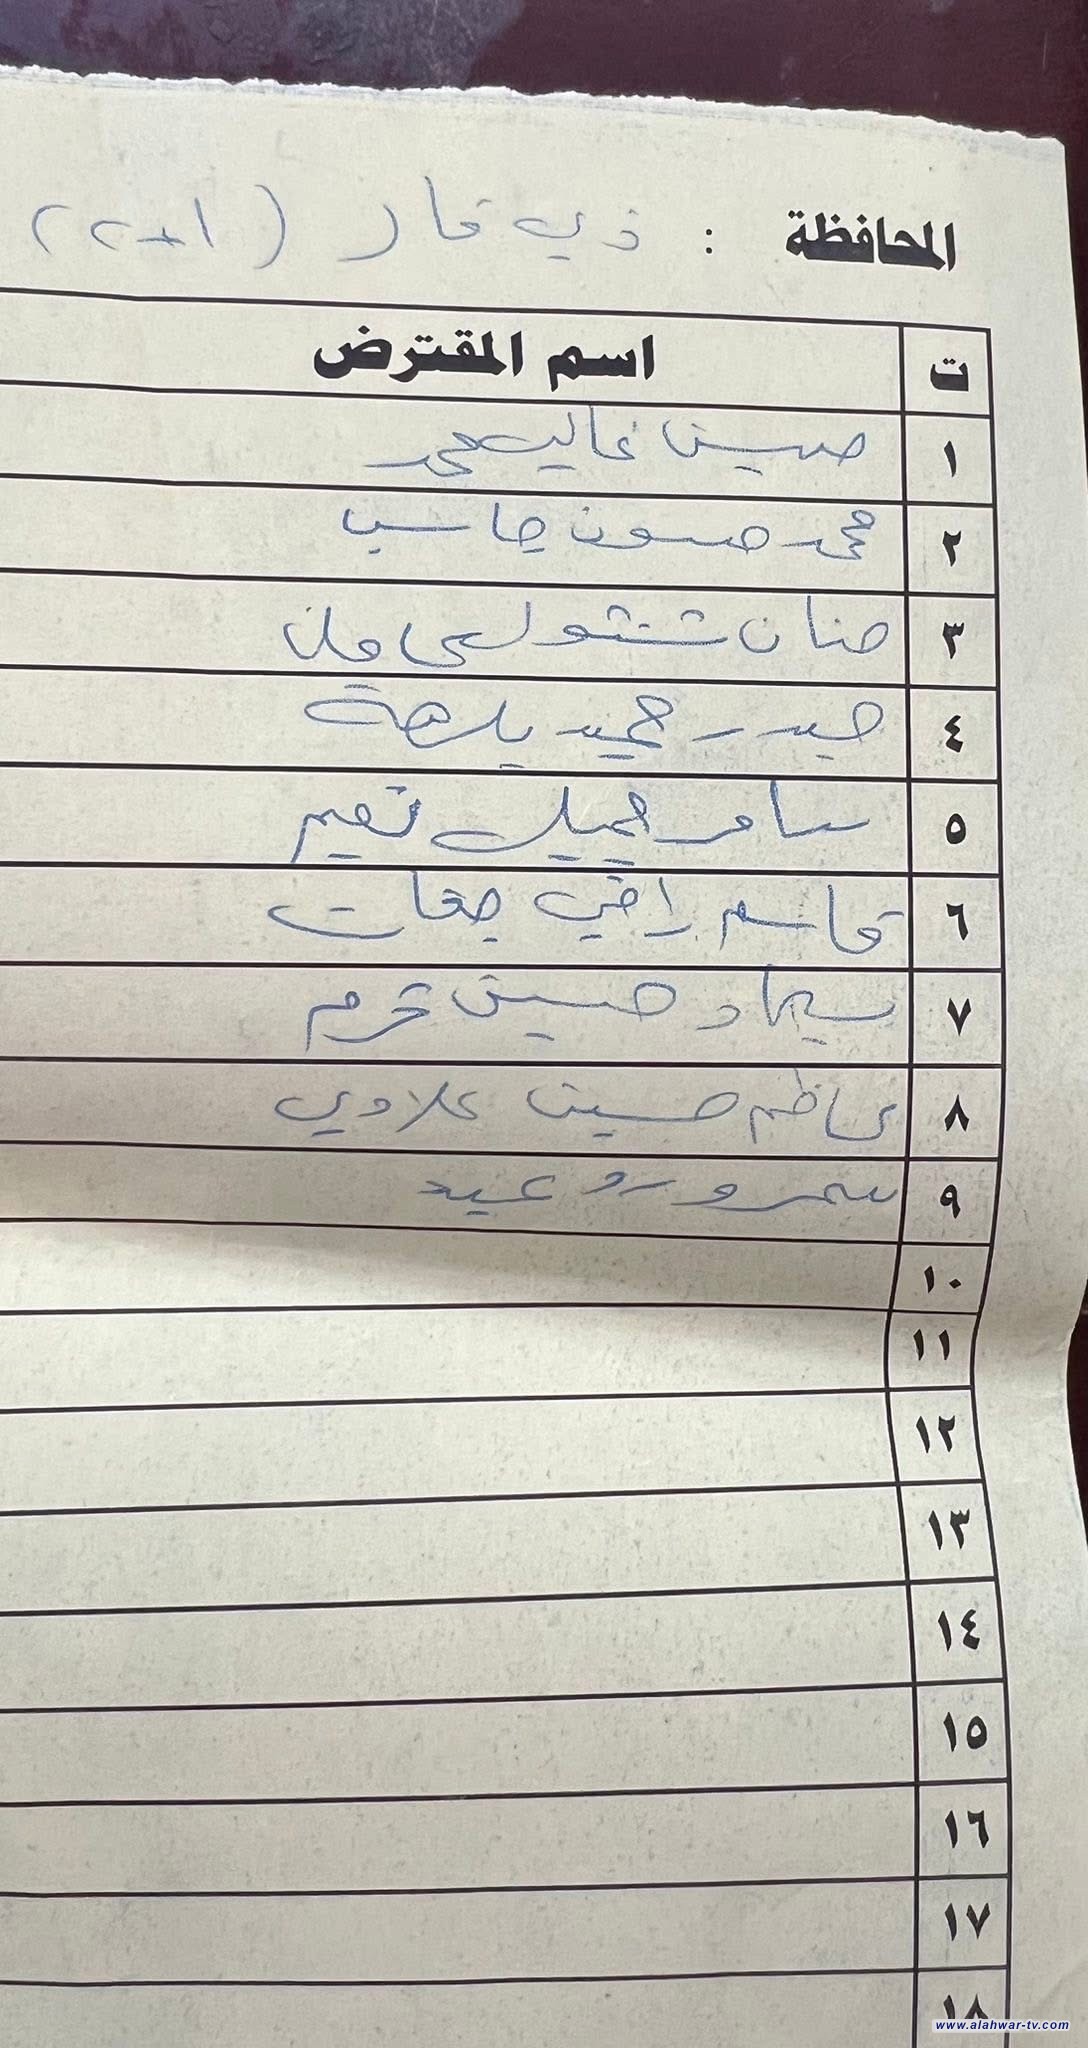 المحافظة : ذي قار (١+٢)
ت اسم المقترض
١ حسين غالب محمد
٢ محمد حسون جاسب
٣ حنان شنشول
٤ حيدر حميد بدهة
٥ سامر جميل نعيم
٦ قاسم راضي جفات
٧ حسين محرم
٨ كاظم حسين علاوي
٩ عيد
١٠
١١
١٢
١٣
١٤
١٥
١٦
١٧
١٨
www.alahwar-tv.com